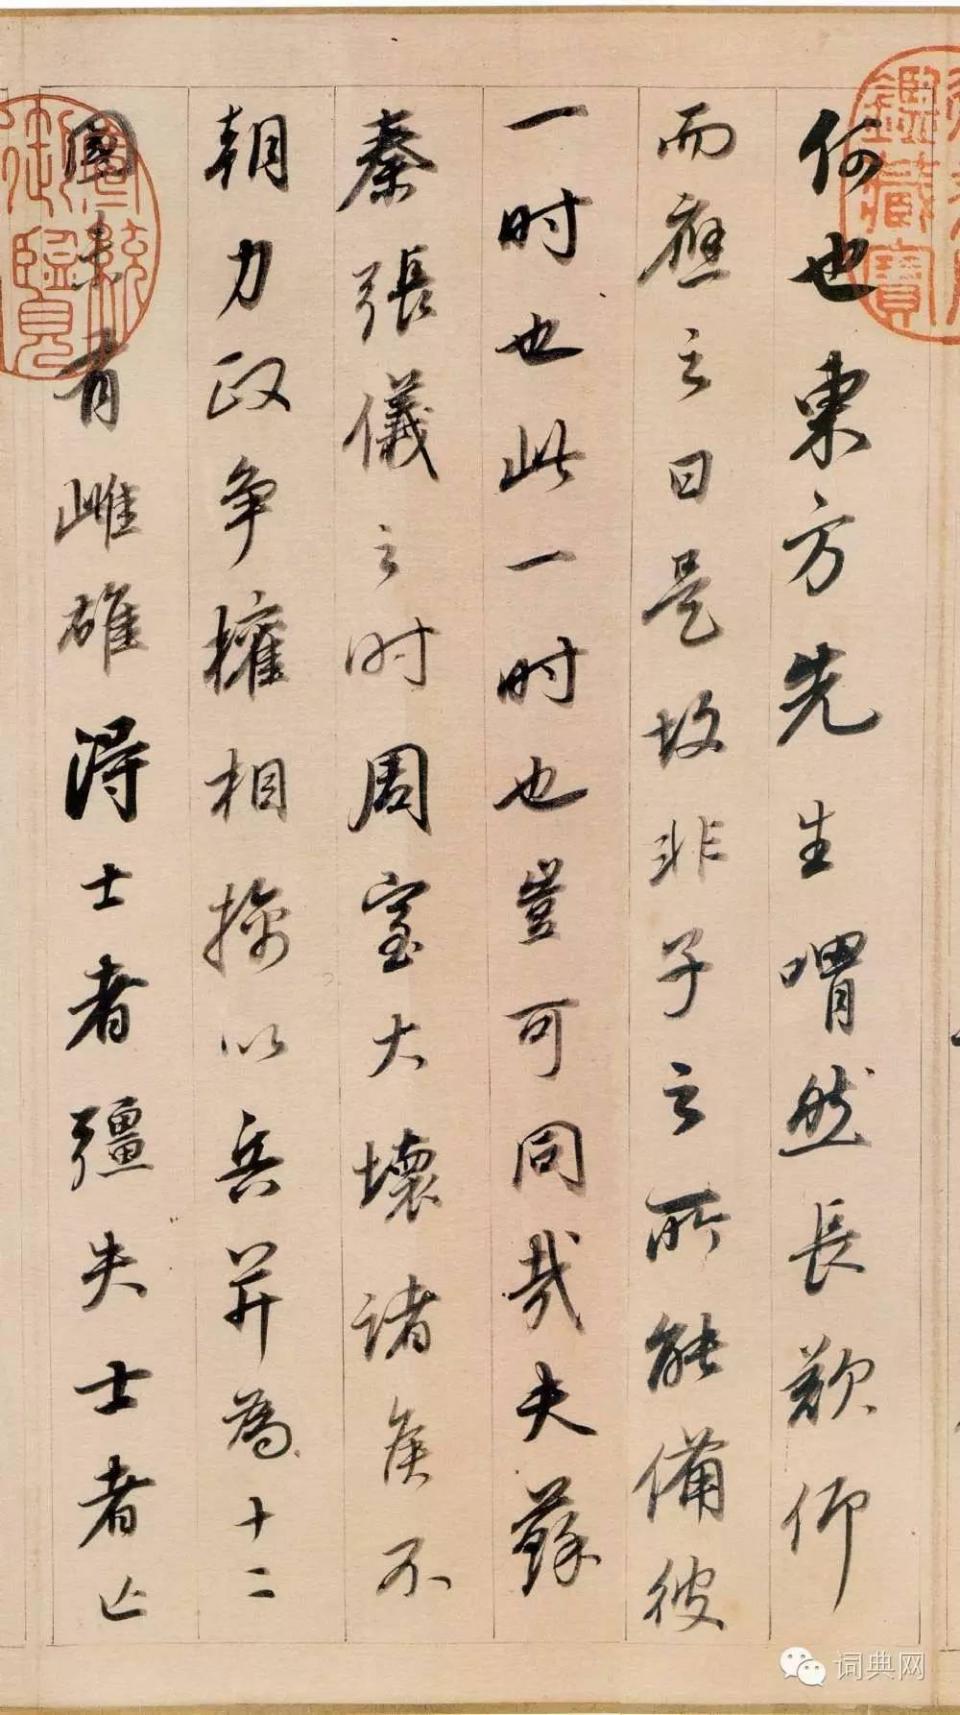 何也東方先生喟然長歎仰
而應之曰是故非子之所能備彼
一时也此一时也豈可同哉夫蘇
秦張儀之时周室大壞諸侯不
朝力政争權相擒以兵并為十二
國未有雌雄得士者彊失士者亡
鑑藏寶
宣統御覽
词典网